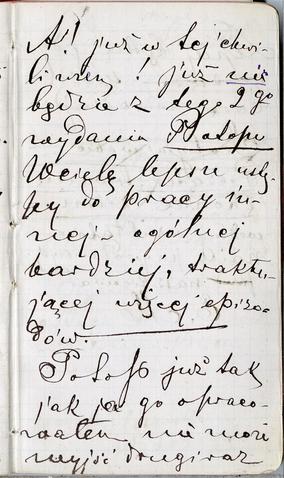 A! już w tej chwi-
li wiem! już nie
będzie z tego 2go
wydania Potopu
Wcielę lepsze ustę-
py do pracy in-
nej - ogólnej
bardziej, traktu-
jącej więcej epizo-
dów.
Potop już tak
jak ja go opraco-
wałem nie może
wyjść drugi raz